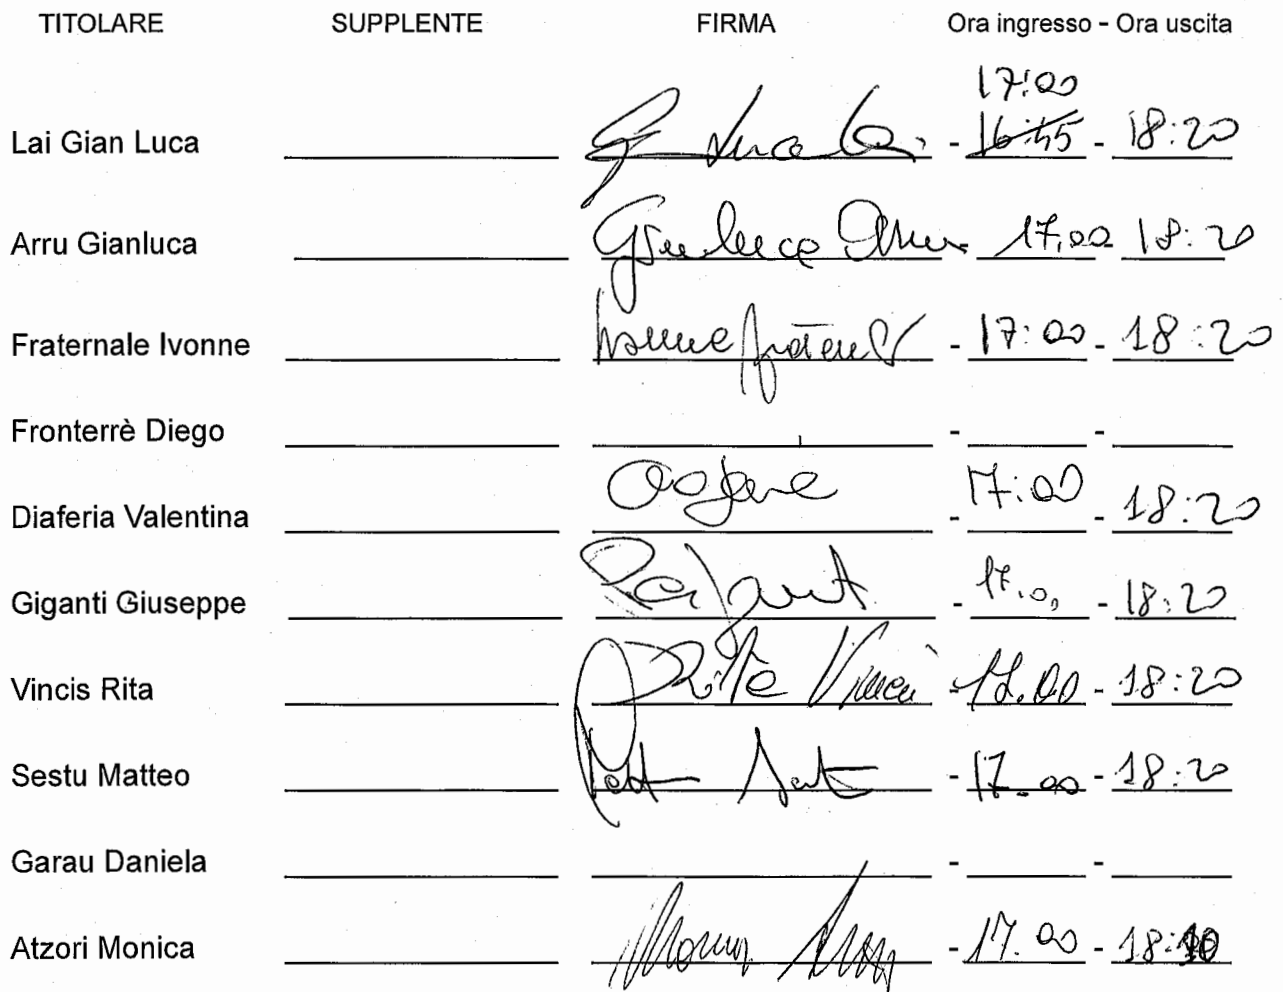 TITOLARE SUPPLENTE FIRMA Ora ingresso - Ora uscita
17:00
Lai Gian Luca G Luca Lai - 16:45 - 18:20
Arru Gianluca Gianluca Arru 17,00 18:20
Fraternale Ivonne - 17:00 - 18:20
Fronterrè Diego - -
Diaferia Valentina - 17:00 - 18:20
Giganti Giuseppe - 17.0, - 18:20
Vincis Rita Rita Vincis - 17.00 - 18:20
Sestu Matteo - 17.00 - 18:20
Garau Daniela - -
Atzori Monica - 17.00 - 18: